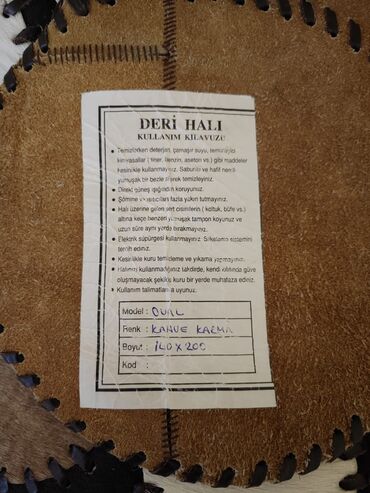 DERİ HALI
KULLANIM KILAVUZU
• Temizlerken deterjan, çamaşır suyu, temizleyici
kimyasallar ( tiner, benzin, aseton vs.) gibi maddeler
kesinlikle kullanmayınız. Sabunlu ve hafif nemli
yumuşak bir bezle silerek temizleyiniz.
• Direkt güneş ışığından koruyunuz.
• Şömine ve ısıtıcıları fazla yakın tutmayınız.
• Halı üzerine gelen sert cisimlerin ( koltuk, büfe vs.)
altına keçe benzeri yumuşak tampon koyunuz ve
uzun süre aynı yerde bırakmayınız.
• Elektrik süpürgesi kullanmayınız. Silkeleme sistemini
tercih ediniz.
• Kesinlikle kuru temizleme ve yıkama yapmayınız.
• Halınızı kullanmadığınız takdirde, kendi halinde güve
oluşmayacak şekilde kuru bir yerde muhafaza ediniz.
• Kullanım talimatlarına uyunuz.
Model : OVAL
Renk : KAHVE KAZMA
Boyut : 140 X 200
Kod :